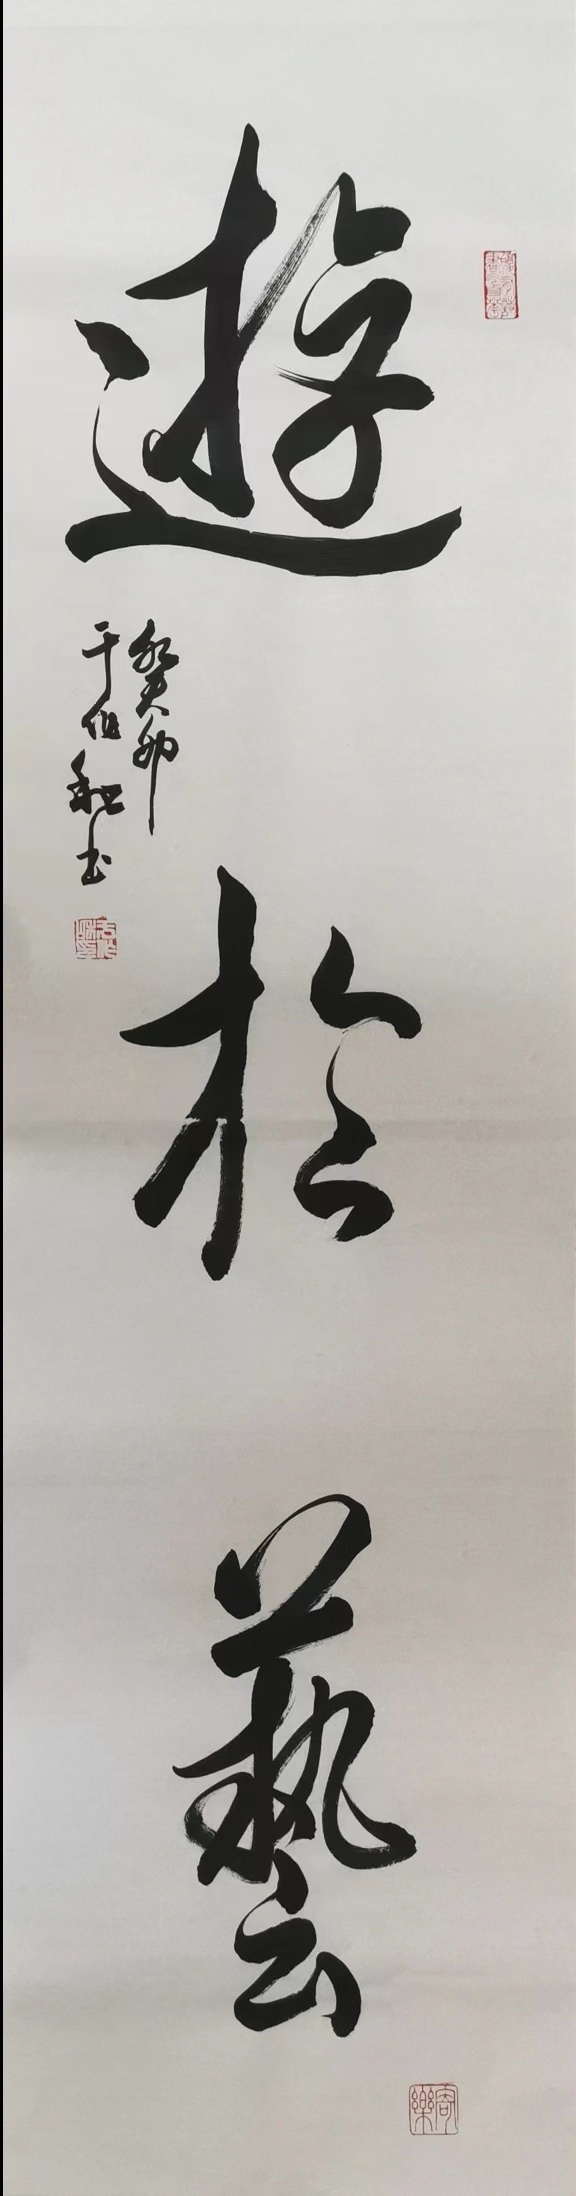 遊於藝
癸卯
于伯和书
寄樂